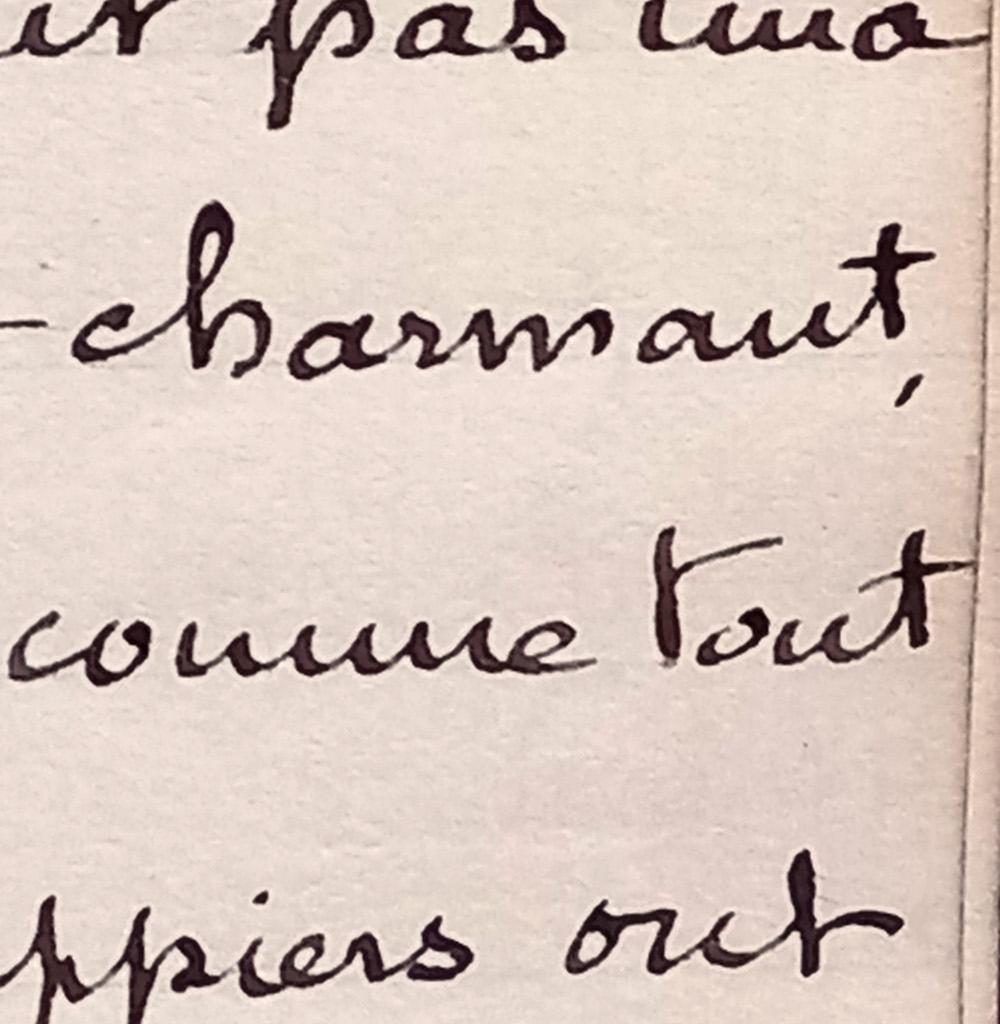 pas ima
- charmant,
comme tout
ppiers ont